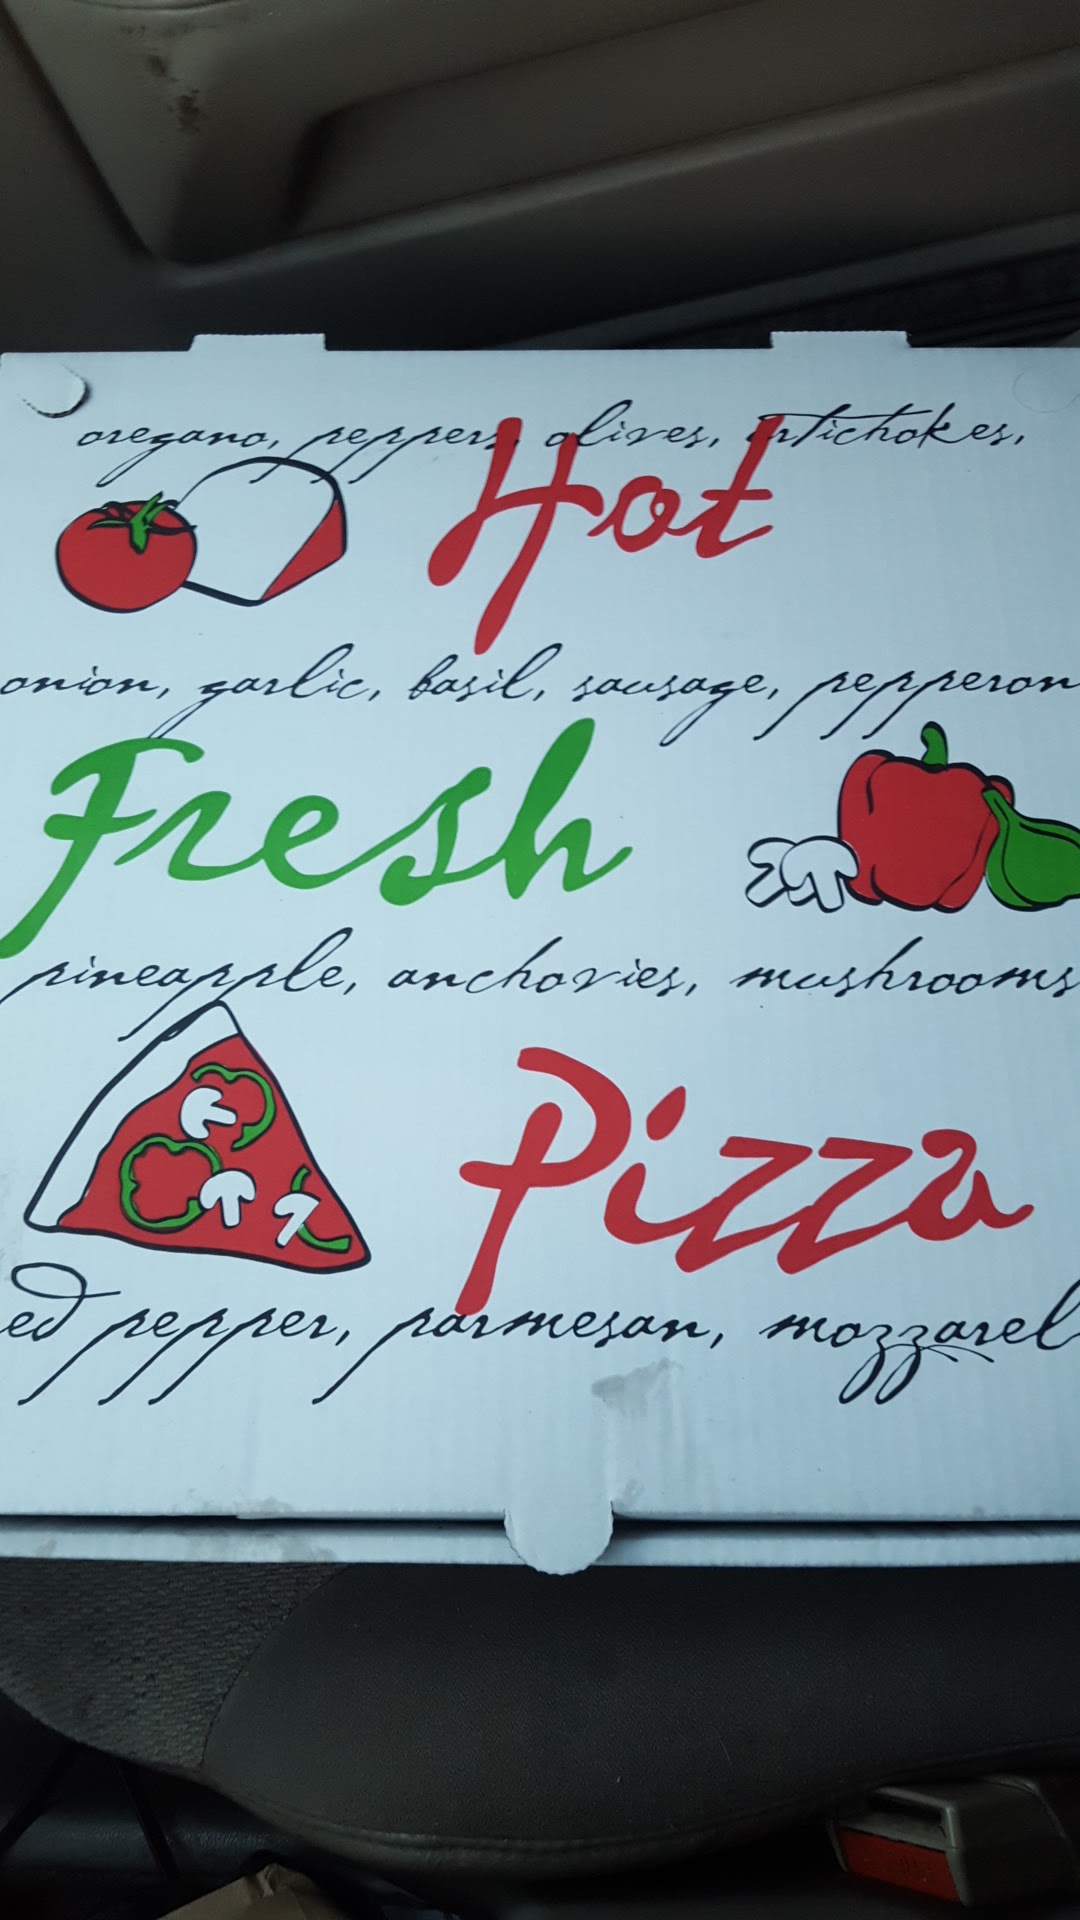 oregano, peppers, olives, artichokes,
Hot
onion, garlic, basil, sausage, pepperon
Fresh
pineapple, anchovies, mushrooms
Pizza
ed pepper, parmesan, mozzarel